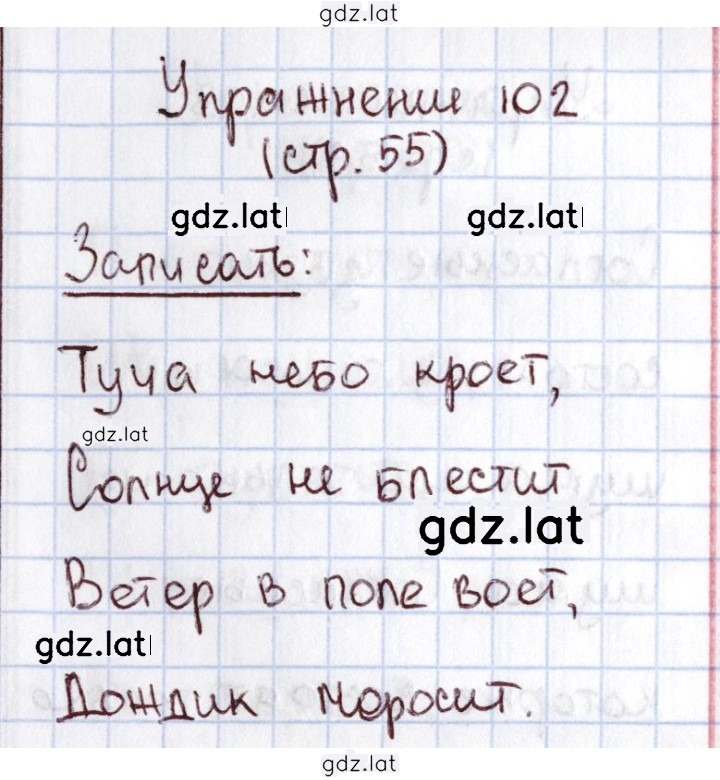 gdz.lat
Упражнение 102
(стр. 55)
gdz.lat gdz.lat
Записать:
Туча небо кроет,
gdz.lat
Солнце не блестит
gdz.lat
Ветер в поле воет,
gdz.lat
Дождик моросит.
gdz.lat